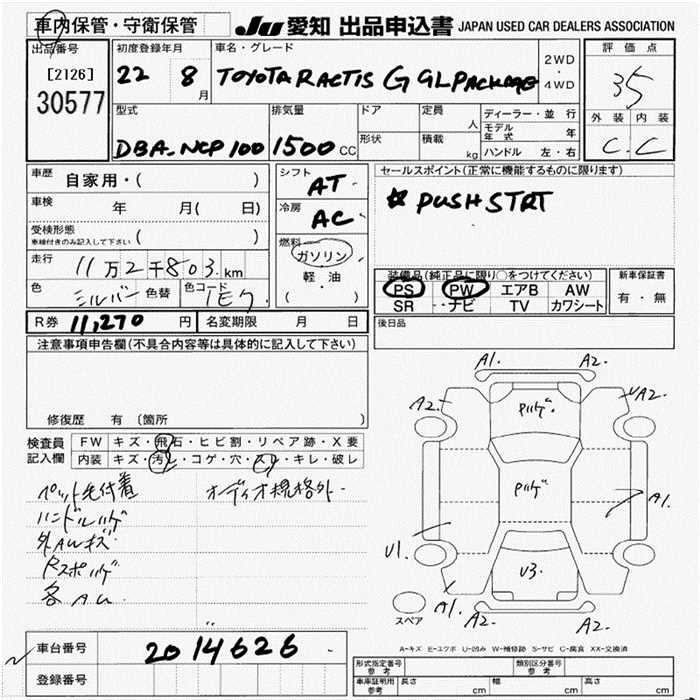 車内保管・守衛保管
JU 愛知 出品申込書 JAPAN USED CAR DEALERS ASSOCIATION
出品番号
[2126]
30577
初度登録年月
22 8月
車名・グレード
TOYOTA RACTIS G GLPACKAGE
2WD
・
4WD
評価点
35
外装 内装
C C
型式
DBA-NCP100
排気量
1500 CC
ドア
形状
定員
人
積載
kg
ディーラー・並行
モデル年式 年
ハンドル 左・右
車歴
自家用・( )
車検 年 月( 日)
受検形態
車検付きのみ記入して下さい ( )
走行
11万2千803km
色
シルバー
色替
色コード
1E7
シフト
AT
冷房
AC
燃料
ガソリン
軽油
( )
セールスポイント(正常に機能するものに限ります)
☆ PUSH STRT
装備品(純正品に限り○をつけてください)
PS PW エアB AW
SR ナビ TV カワシート
新車保証書
有・無
R券 11,270 円
名変期限 月 日
後日品
注意事項申告欄(不具合内容等は具体的に記入して下さい)
修復歴 有 〔箇所 〕
検査員記入欄
FW キズ・飛石・ヒビ割・リペア跡・X要
内装 キズ・汚レ・コゲ・穴・スレ・キレ・破レ
ペット毛付着 オーディオ規格外
ハンドルハゲ
外AWキズ
Rスポハゲ
各AU
A1. A2.
A2. A2.
ハゲ
ハゲ
A1.
U1.
U3.
A1.
A2. A2.
スペア
A-キズ E-エクボ U-凹み W-補修跡 S-サビ C-腐食 XX-交換済
車台番号 2014626
登録番号
形式指定番号
参考
類別区分番号
参考
車庫証明用
参考
長さ cm 幅 cm 高さ cm